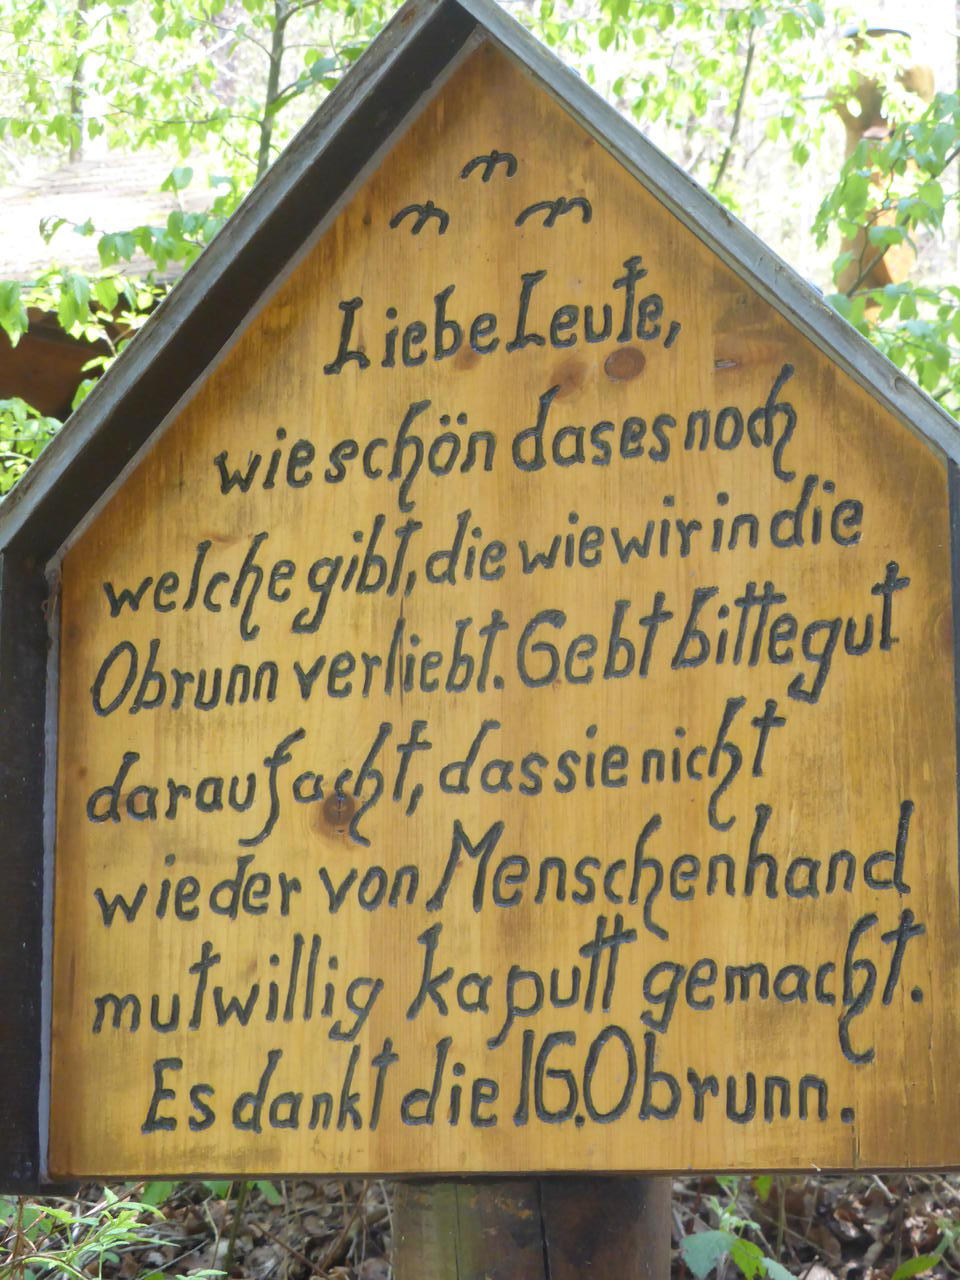 Liebe Leute,
wie schön das es noch
welche gibt, die wie wir in die
Obrunn verliebt. Gebt bitte gut
darauf acht, das sie nicht
wieder von Menschenhand
mutwillig kaputt gemacht.
Es dankt die IG.Obrunn.